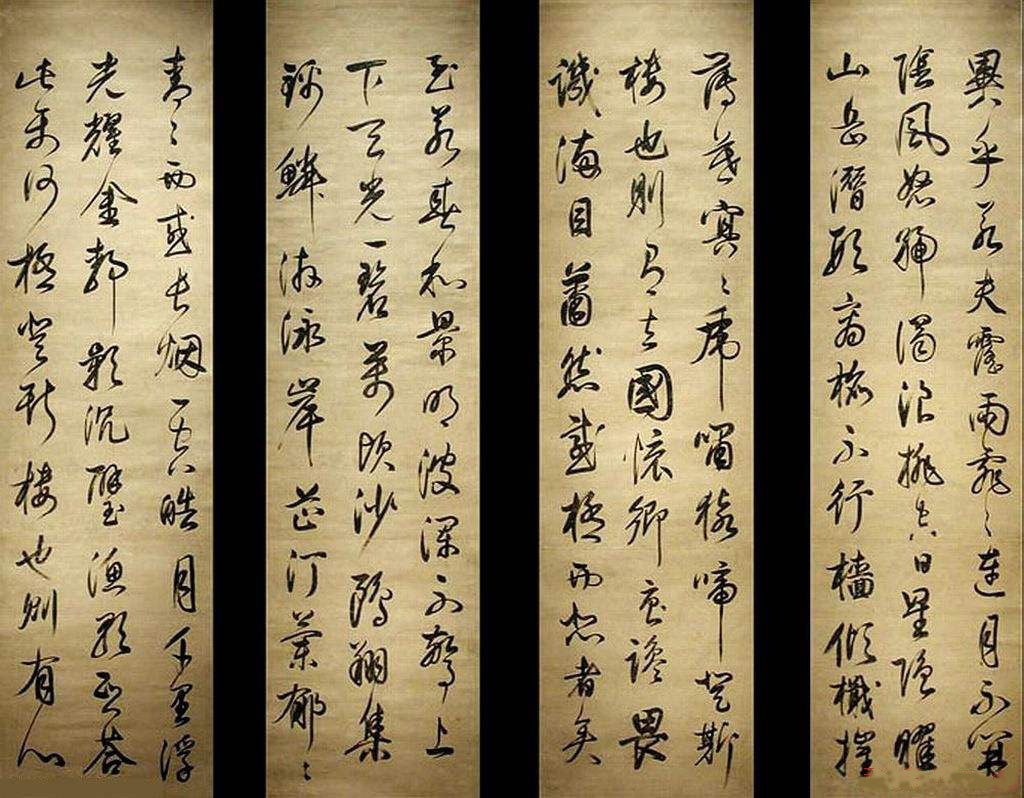 異乎若夫霪雨霏々連月不開
陰風怒號濁浪排空日星隱曜
山岳潛形商旅不行檣傾檝摧
薄暮冥々虎嘯猿啼登斯
樓也則有去國懷鄉憂讒畏
譏滿目蕭然感極而悲者矣
至若春和景明波瀾不驚上
下天光一碧萬頃沙鷗翔集
錦鱗游泳岸芷汀蘭郁々
青々而或長烟一空皓月千里浮
光耀金靜影沉璧漁歌互答
此樂何極登斯樓也則有心